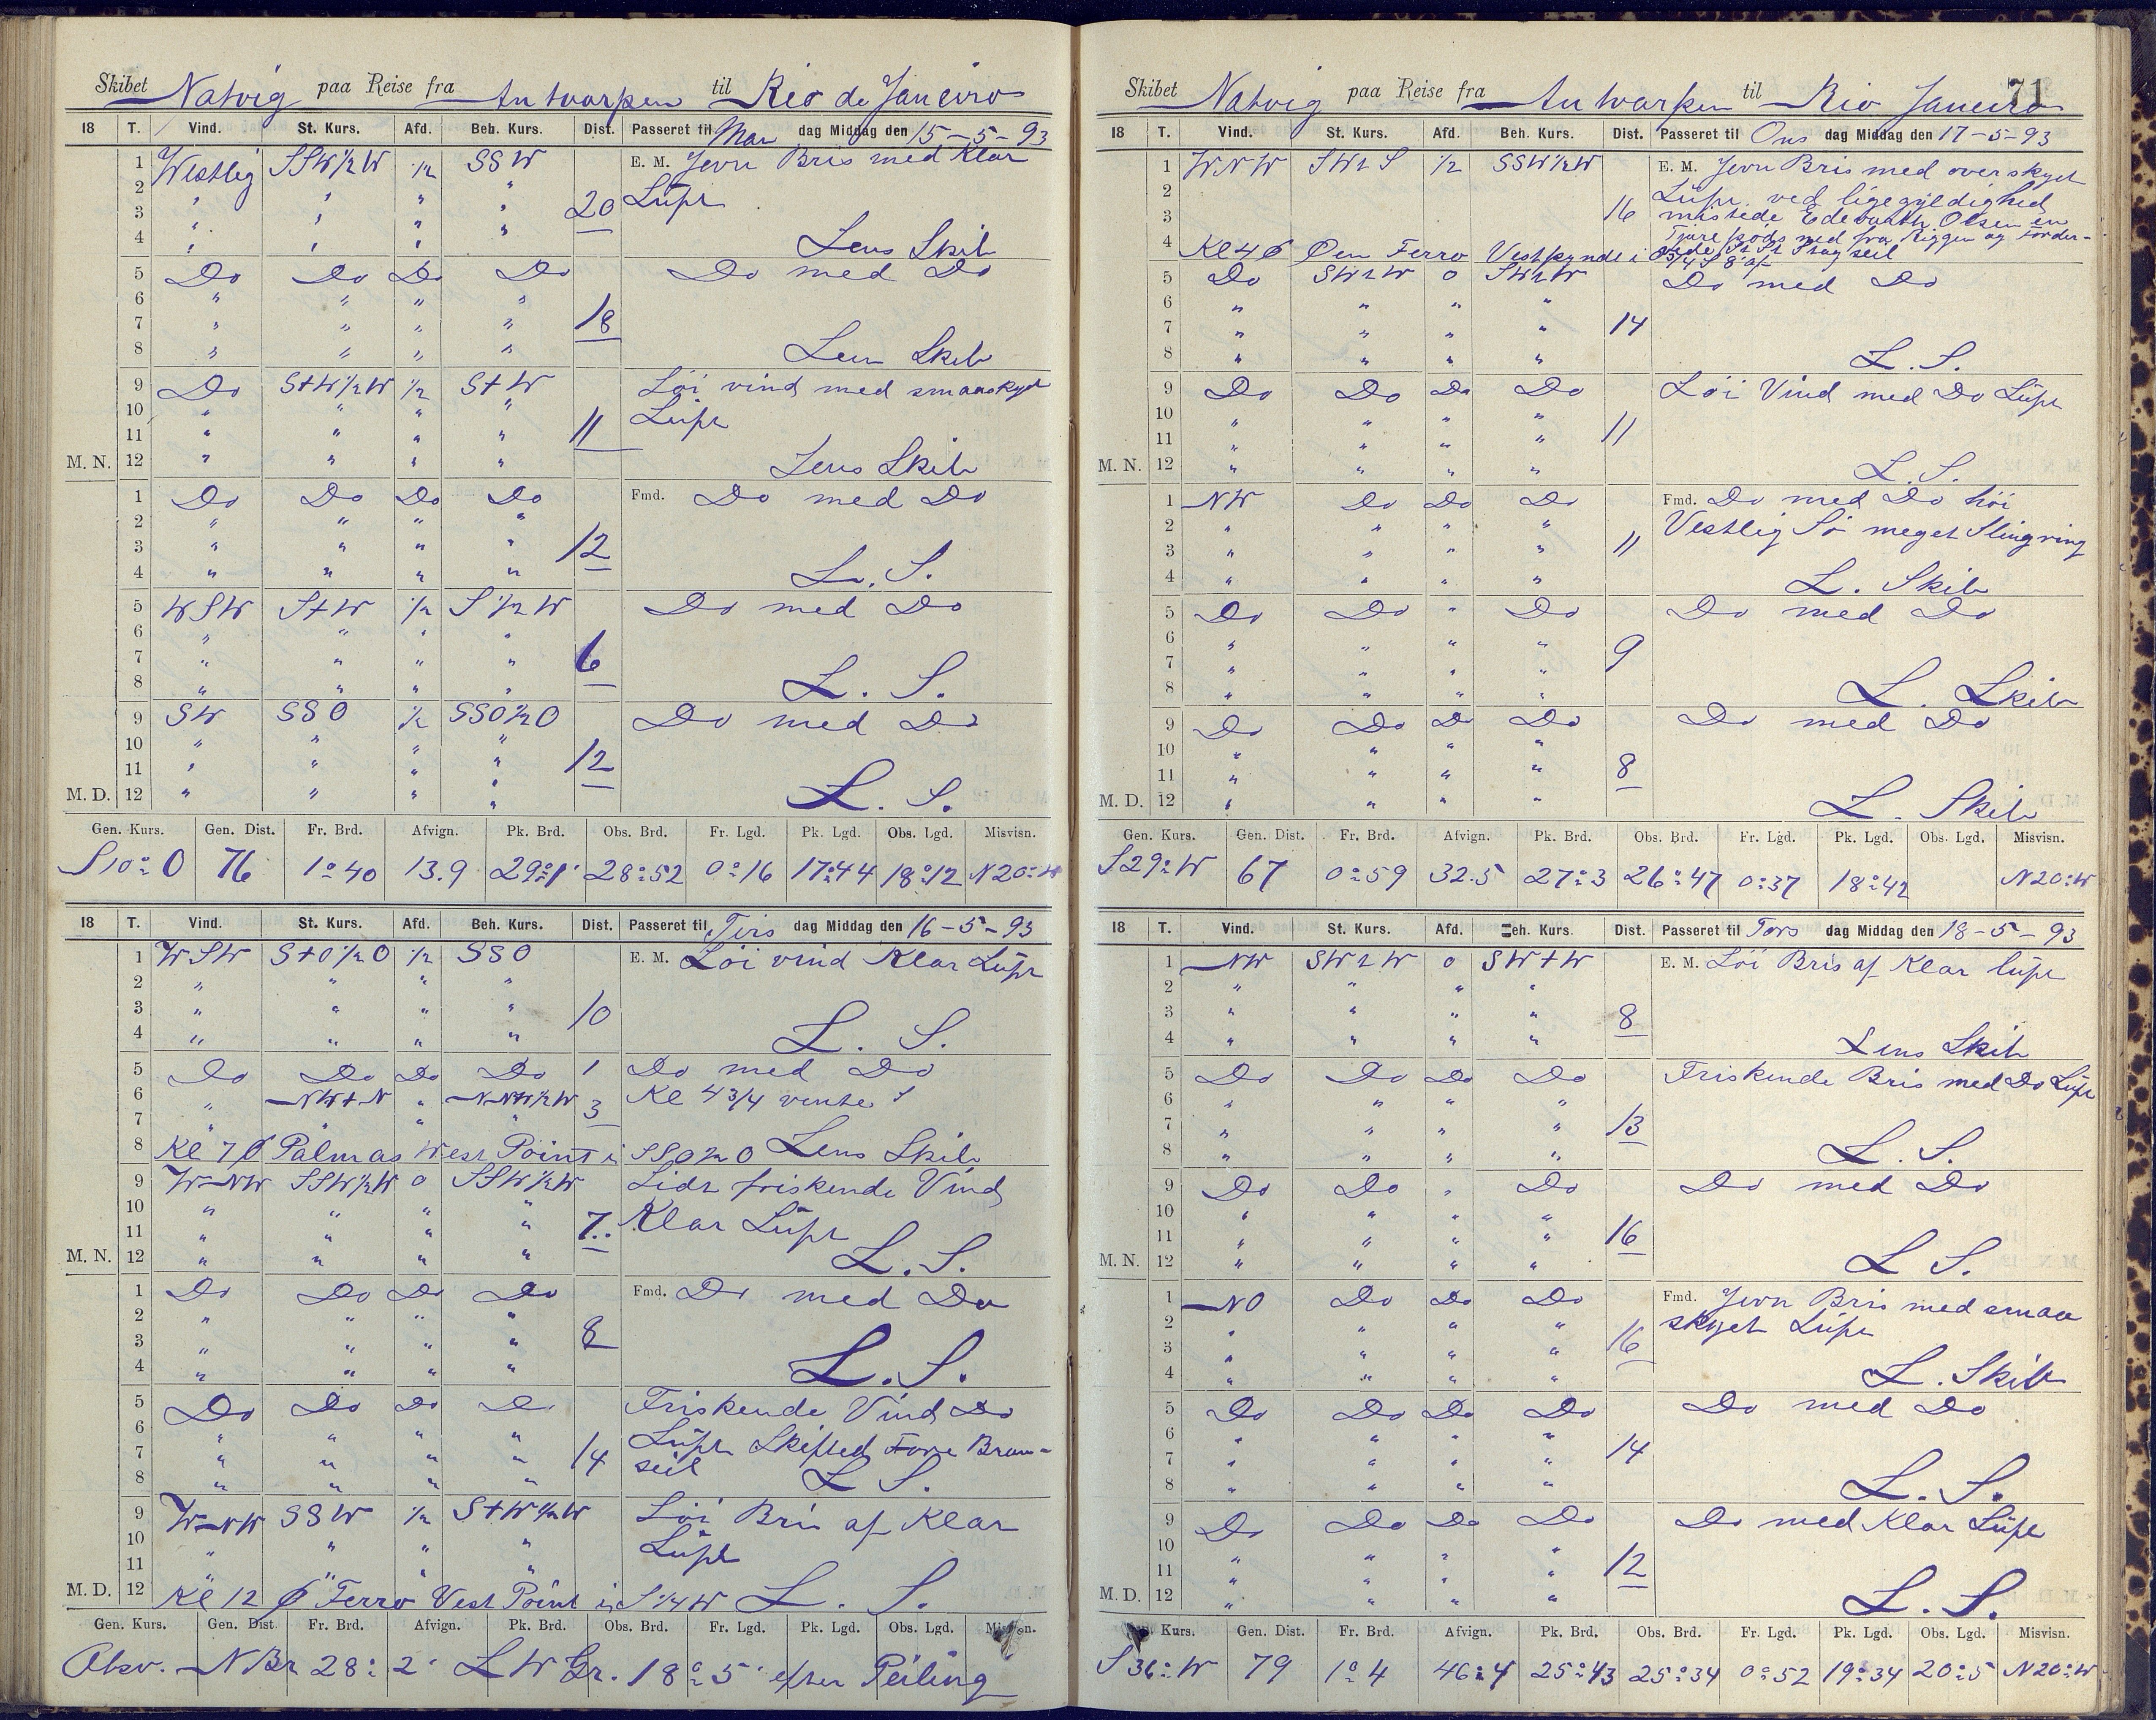 Skibet Natvig paa Reise fra Antwarpen til Rio de Janeiro
18 T. Vind. St. Kurs. Afd. Beh. Kurs. Dist. Passeret til Man dag Middag den 15-5-93
1 Westlig SSW½W ½ SSW E. M. Jevn Bris med Klar
2 " " " " Luft
3 " " " " 20
4 " " " " Lens Skib
5 Do Do Do Do Do med Do
6 " " " "
7 " " " " 18
8 " " " " Lens Skib
9 Do S+W½W ½ S+W Löi vind med smaaskyet
10 " " " " Luft
11 " " " " 11
M. N. 12 " " " " Lens Skib
1 Do Do Do Do Fmd. Do med Do
2 " " " "
3 " " " " 12
4 " " " " L. S.
5 WSW S+W ½ S½W Do med Do
6 " " " "
7 " " " " 6
8 " " " " L. S.
9 SW SSO ½ SSO½O Do med Do
10 " " " "
11 " " " " 12
M. D. 12 " " " " L. S.
Gen. Kurs. Gen. Dist. Fr. Brd. Afvign. Pk. Brd. Obs. Brd. Fr. Lgd. Pk. Lgd. Obs. Lgd. Misvisn.
S10°O 76 1°40 13.9 29°1' 28°52 0°16 17°44 18°12 N20°W
18 T. Vind. St. Kurs. Afd. Beh. Kurs. Dist. Passeret til Tirs dag Middag den 16-5-93
1 WSW S+O½O ½ SSO E. M. Löi vind Klar Luft
2 " " " "
3 " " " " 10
4 " " " " L. S.
5 Do Do Do Do 1 Do med Do
6 " NW+N " NNW½W 3 Kl 4 3/4 vente
7 " " " "
8 Kl 7 Palmas West Point i SSO½O Lens Skib
9 WNW SSW½W 0 SSW½W Lidt friskende Vind
10 " " " " Klar Luft
11 " " " " 7
M. N. 12 " " " " L. S.
1 Do Do Do Do Fmd. Do med Do
2 " " " "
3 " " " " 8
4 " " " " L. S.
5 Do Do Do Do Friskende Vind Do
6 " " " " Luft Skifted Forre Bram-
7 " " " " 14 seil
8 " " " " L S.
9 WNW SSW ½ S+W½W Löi Bris af Klar
10 " " " " Luft
11 " " " "
M. D. 12 Kl 12 Ferro Vest Point i S¼W L. S.
Gen. Kurs. Gen. Dist. Fr. Brd. Afvign. Pk. Brd. Obs. Brd. Fr. Lgd. Pk. Lgd. Obs. Lgd. Misvisn.
Obsv. NBr 28°2' LWGr. 18°5' efter Peiling
71
Skibet Natvig paa Reise fra Antwarpen til Rio Janeiro
18 T. Vind. St. Kurs. Afd. Beh. Kurs. Dist. Passeret til Ons dag Middag den 17-5-93
1 WNW SWtS ½ SSW½W E. M. Jevn Bris med overskyet
2 Luft ved ligegyldighed
3 16 mistede Olsen en
Tjære ned fra Riggen og
4 Kl 4 Öen Ferro Vestpynt i
5 Do SWtW 0 SWtW Do med Do
6 " " " "
7 " " " " 14
8 " " " " L. S.
9 Do Do Do Do Löi Vind med Do Luft
10 " " " "
11 " " " " 11
M. N. 12 " " " " L. S.
1 NW Do Do Do Fmd. Do med Do höi
2 " " " " Vestlig Sö meget Slingring
3 " " " " 11
4 " " " " L. Skib
5 Do Do " Do Do med Do
6 " " " "
7 " " " " 9
8 " " " " L. Skib
9 Do Do Do Do Do med Do
10 " " " "
11 " " " " 8
M. D. 12 " " " " L. Skib
Gen. Kurs. Gen. Dist. Fr. Brd. Afvign. Pk. Brd. Obs. Brd. Fr. Lgd. Pk. Lgd. Obs. Lgd. Misvisn.
S29°W 67 0°59 32.5 27°3 26°47 0°37 18°42 N20°W
18 T. Vind. St. Kurs. Afd. Beh. Kurs. Dist. Passeret til Tors dag Middag den 18-5-93
1 NW SWtW 0 SW+W E. M. Löi Bris af Klar luft
2 " " " "
3 " " " " 8
4 " " " " Lens Skib
5 Do Do Do Do Friskende Bris med Do Luft
6 " " " "
7 " " " " 13
8 " " " " L. S.
9 Do Do " Do Do med Do
10 " " " "
11 " " " " 16
M. N. 12 " " " " L S.
1 NO Do Do Do Fmd. Jevn Bris med smaa
2 " " " " skyet Luft
3 " " " " 16
4 " " " " L. Skib
5 Do Do Do Do Do med Do
6 " " " "
7 " " " " 14
8 " " " " L. S.
9 Do Do Do Do Do med Klar Luft
10 " " " "
11 " " " " 12
M. D. 12 " " " " L. S.
Kurs. Gen. Dist. Fr. Brd. Afvign. Pk. Brd. Obs. Brd. Fr. Lgd. Pk. Lgd. Obs. Lgd. Misvisn.
S36°W 79 1°4 46°4 25°43 25°34 0°52 19°34 20°5 N20°W